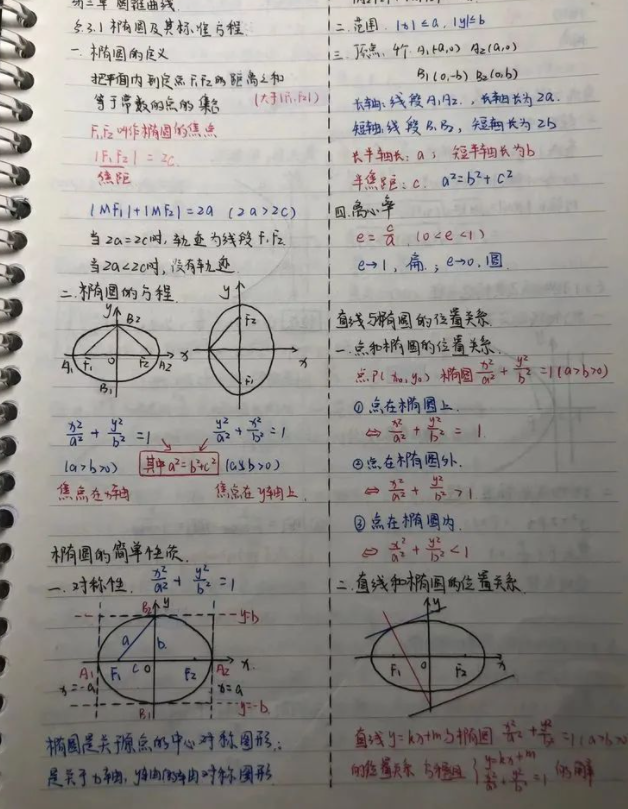 第三章 圆锥曲线
§.3.1 椭圆及其标准方程
一. 椭圆的定义
把平面内到定点F₁F₂的距离之和
等于常数的点的集合 (大于|F₁F₂|)
F₁F₂叫作椭圆的焦点
|F₁F₂| = 2c
焦距
|MF₁|+|MF₂|=2a (2a>2c)
当2a=2c时, 轨迹为线段F₁F₂
当2a<2c时, 没有轨迹
二. 椭圆的方程
y B₂
A₁ F₁ O F₂ A₂ x
B₁
y
F₂
x
F₁
x²/a² + y²/b² = 1 y²/a² + x²/b² = 1
(a>b>0) 其中a²=b²+c² (a>b>0)
焦点在x轴 焦点在y轴上
椭圆的简单性质
一. 对称性. x²/a² + y²/b² = 1
B₂ y y=b
a b
A₁ F₁ c O F₂ A₂ x
x=-a x=a
B₁ y=-b
椭圆是关于原点的中心对称图形;
是关于x轴, y轴的轴对称图形
二. 范围. |x|≤a, |y|≤b
三. 顶点. 4个. A₁(-a,0) A₂(a,0)
B₁(0,-b) B₂(0,b)
长轴: 线段A₁A₂, 长轴长为2a.
短轴: 线段B₁B₂, 短轴长为2b
长半轴长: a; 短半轴长为b
半焦距: c. a²=b²+c²
四. 离心率
e = c/a (0<e<1)
e→1, 扁; e→0, 圆
直线与椭圆的位置关系
一. 点和椭圆的位置关系.
点P(x₀,y₀) 椭圆 x²/a² + y²/b² = 1 (a>b>0)
① 点在椭圆上.
⇔ x²/a² + y²/b² = 1
② 点在椭圆外.
⇔ x²/a² + y²/b² > 1
③ 点在椭圆内.
⇔ x²/a² + y²/b² < 1
二. 直线和椭圆的位置关系.
y
F₁ O F₂ x
直线y=kx+m与椭圆 x²/a² + y²/b² = 1 (a>b>0)
的位置关系 方程组 { y=kx+m
x²/a² + y²/b² = 1 的解